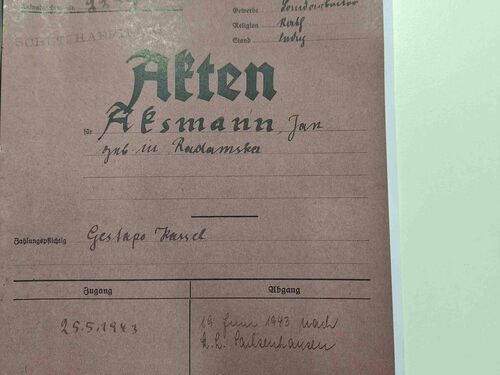 Gewerbe Landarbeiter
Religion Kath
Stand ledig
SCHUTZHAFT
Akten
für Aksmann Jan
geb. in Radamska
Zahlungspflichtig Gestapo Kassel
Zugang Abgang
25.5.1943 19. Juni 1943 nach
K.L. Sachsenhausen